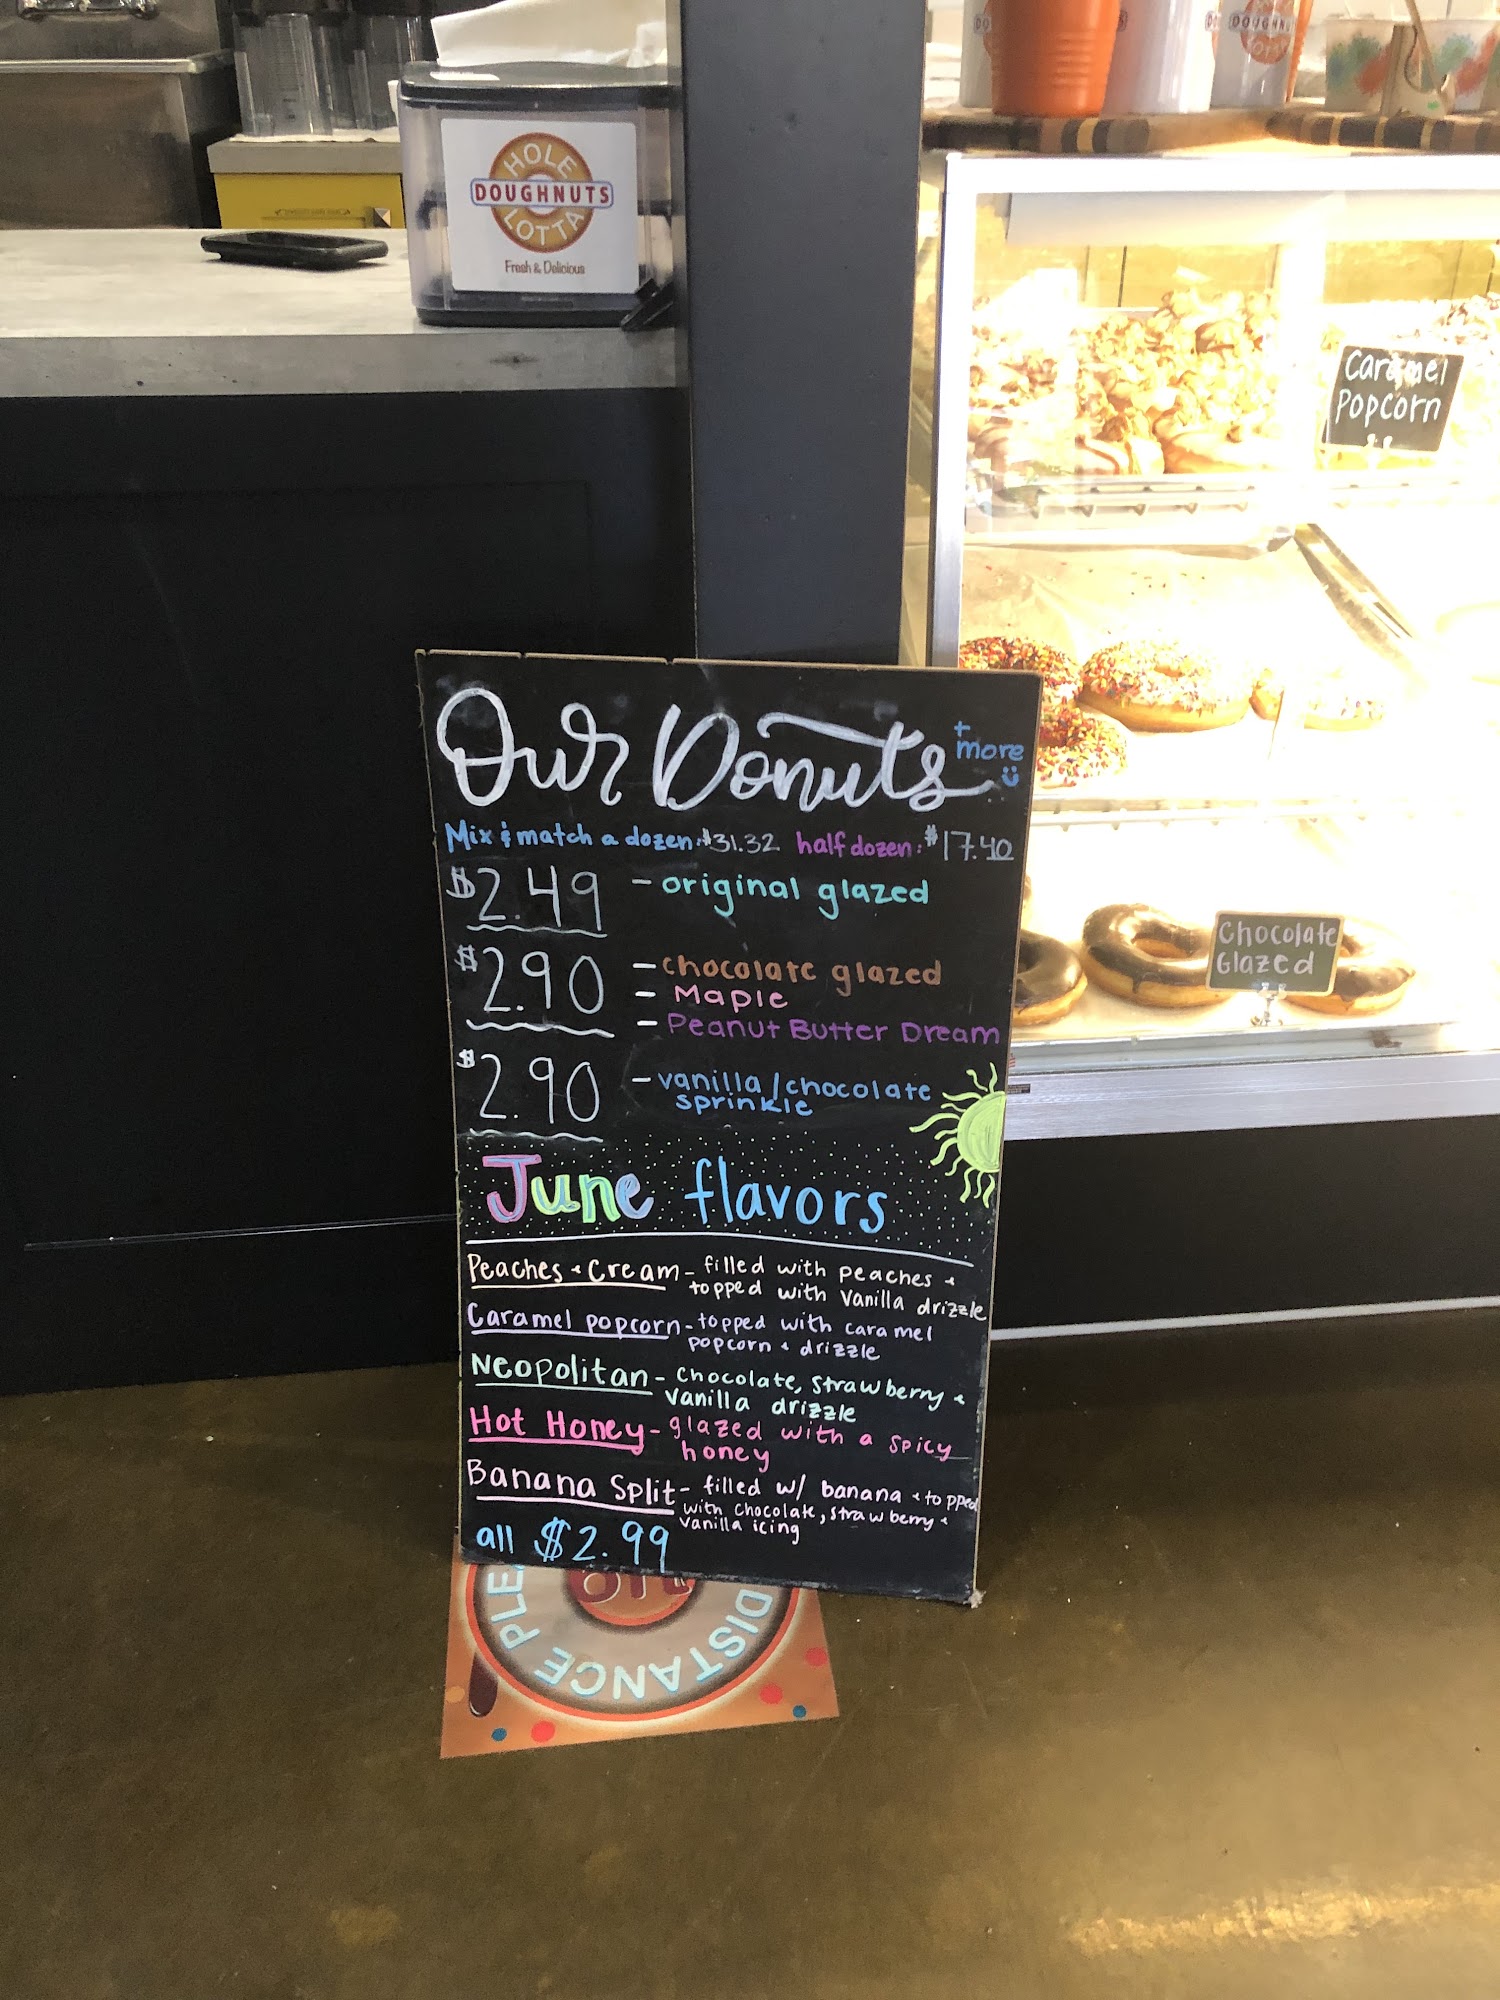 HOLE
DOUGHNUTS
LOTTA
Fresh & Delicious
DOUGHNU
Caramel
Popcorn
Our Donuts
+
more
Mix & match a dozen: $31.32 half dozen: $17.40
$2.49 - original glazed
$2.90 - chocolate glazed
- Maple
- Peanut Butter Dream
$2.90 - vanilla/chocolate
sprinkle
Chocolate
Glazed
June flavors
Peaches + Cream - filled with peaches +
topped with vanilla drizzle
Caramel popcorn - topped with caramel
popcorn + drizzle
Neopolitan - chocolate, strawberry +
vanilla drizzle
Hot Honey - glazed with a spicy
honey
Banana Split - filled w/ banana + topped
with chocolate, strawberry +
vanilla icing
all $2.99
PLE
DISTANCE